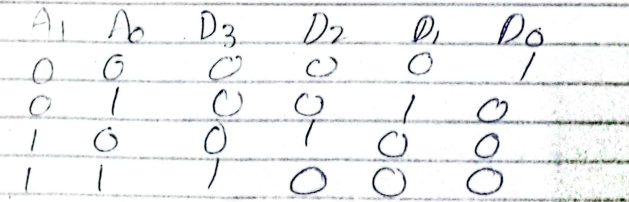 A1 A0 D3 D2 D1 D0
0 0 0 0 0 1
0 1 0 0 1 0
1 0 0 1 0 0
1 1 1 0 0 0